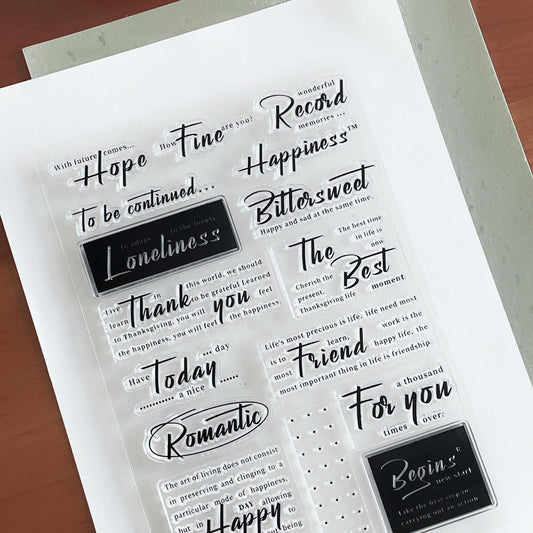 With future comes...
Hope
How Fine are you?
wonderful
Record
memories ...
Happiness™
To be continued...
Bittersweet
Happy and sad at the same time.
To adapt to the lonely
Loneliness
The best time
in life is
now
The
Cherish the Best
present, moment
Thanksgiving life
Live in this world, we should
learn Thank to be grateful Learned
to Thanksgiving, you will you feel
the happiness, you will feel the happiness.
Life's most precious is life, life need most
is to learn, work is the
most Friend happy life, the
most important thing in life is friendship.
... day
Have Today
........... a nice ......
a thousand
For you
times over.
Romantic
The art of living does not consist
in preserving and clinging to a
particular mode of happiness,
but in DAY allowing
Happy
being
Begins
new start
Take the first step in
carrying out an action